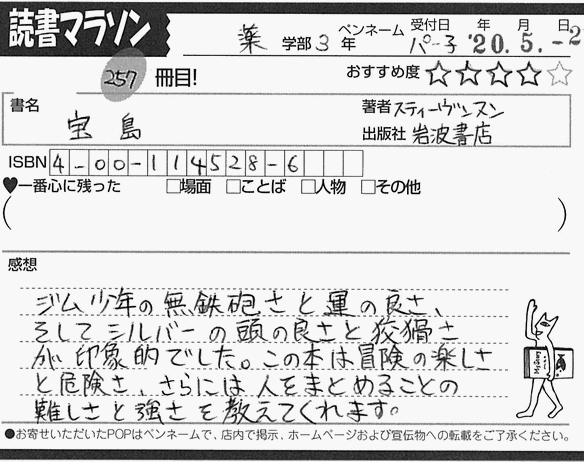 読書マラソン
薬 学部 3 年 ペンネーム パー子 受付日 '20.年 5.月 -2日
257 冊目! おすすめ度 ☆☆☆☆☆
書名 宝島
著者 スティーヴンスン
出版社 岩波書店
ISBN 4-00-114528-6
♥一番心に残った □場面 □ことば □人物 □その他
( )
感想
ジム少年の無鉄砲さと運の良さ、
そしてシルバーの頭の良さと狡猾さ
が印象的でした。この本は冒険の楽しさ
と危険さ、さらには人をまとめることの
難しさと強さを教えてくれます。
●お寄せいただいたPOPはペンネームで、店内で掲示、ホームページおよび宣伝物への転載をご了承ください。